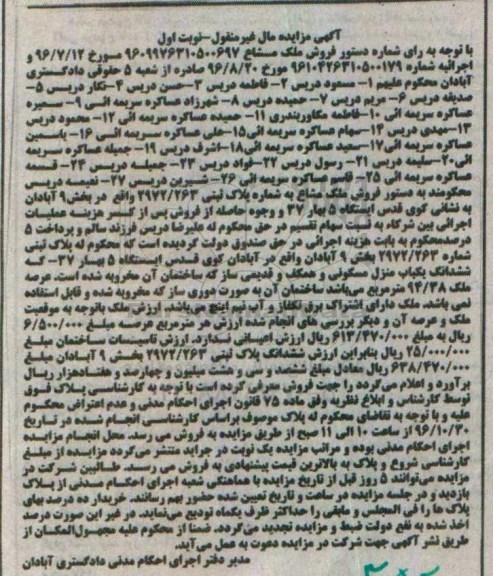 آگهی مزایده مال غیرمنقول-نوبت اول
با توجه به رای شماره دستور فروش ملک مشاع ۹۶۰۹۹۷۶۳۱۰۵۰۰۶۹۷ مورخ ۹۶/۷/۱۲ و
اجرائیه شماره ۹۶۱۰۴۲۶۳۱۰۵۰۰۱۷۹ مورخ ۹۶/۸/۲۰ صادره از شعبه ۵ حقوقی دادگستری
آبادان محکوم علیهم ۱- مسعود دریس ۲- فاطمه دریس ۳-حسن دریس ۴-نگار دریس ۵-
صدیقه دریس ۶- مریم دریس ۷- حمیده دریس ۸- شهرزاد عساکره سریمه ائی ۹- سمیره
عساکره سریمه ائی ۱۰-فاطمه مکاوربندری ۱۱- حمیده عساکره سریمه ائی ۱۲- محمود دریس
۱۳-مهدی دریس ۱۴-سهام عساکره سریمه ائی۱۵-علی عساکره سریمه ائی ۱۶- یاسمین
عساکره سریمه ائی۱۷-سعید عساکره سریمه ائی۱۸-اشرف دریس ۱۹- جمیله عساکره سریمه
ائی۲۰-سلیمه دریس ۲۱- رسول دریس ۲۲-فواد دریس ۲۳- جمیله دریس ۲۴- قسمه
عساکره سریمه ائی ۲۵- قاسم عساکره سریمه ائی ۲۶- شیرین دریس ۲۷- نعیمه دریس
محکومند به دستور فروش ملک مشاع به شماره پلاک ثبتی ۲۹۷۲/۲۶۳ واقع در بخش۹ آبادان
به نشانی کوی قدس ایستگاه ۵ بهار ۳۷ و وجوه حاصله از فروش پس از کسر هزینه عملیات
اجرائی بین شرکاء به نسبت سهام تقسیم در حق محکوم له علیرضا دریس فرزند سالم و پرداخت ۵
درصدمحکوم به بابت هزینه اجرائی در حق صندوق دولت گردیده است که محکوم له پلاک ثبتی
شماره ۲۹۷۲/۲۶۳ بخش ۹ آبادان واقع در آبادان کوی قدس ایستگاه ۵ بهار ۳۷- که
ششدانگ یکباب منزل مسکونی و همکف و قدیمی ساز که ساختمان آن مخروبه شده است. عرصه
ملک ۹۴/۳۸ مترمربع میباشد ساختمان آن به صورت دوری ساز که مخروبه شده و قابل استفاده
نمی باشد. ملک دارای اشتراک برق تکفاز و آب نیم اینچ می‌باشد. ارزش ملک باتوجه به موقعیت
ملک و عرصه آن و دیگر بررسی های انجام شده ارزش هر مترمربع عرصه مبلغ ۶/۵۰۰/۰۰۰
ریال به مبلغ ۶۱۳/۴۷۰/۰۰۰ ریال ارزش اعیانی ندارد. ارزش تاسیسات ساختمان مبلغ
۲۵/۰۰۰/۰۰۰ ریال بنابراین ارزش ششدانگ پلاک ثبتی ۲۹۷۲/۲۶۳ بخش ۹ آبادان مبلغ
۶۳۸/۴۷۰/۰۰۰ ریال معادل مبلغ ششصد و سی و هشت میلیون و چهارصد و هفتادهزار ریال
برآورد و اعلام می‌گردد را جهت فروش معرفی کرده است با توجه به کارشناسی پلاک فوق
توسط کارشناس و ابلاغ نظریه وفق ماده ۷۵ قانون اجرای احکام مدنی و عدم اعتراض محکوم
علیه و با توجه به تقاضای محکوم له پلاک موصوف براساس کارشناسی انجام شده در تاریخ
۹۶/۱۰/۳۰ از ساعت ۱۰ الی ۱۱ صبح از طریق مزایده به فروش می رسد. محل انجام مزایده
اجرای احکام مدنی بوده و مراتب مزایده یک نوبت در جراید منتشر می‌گردد مزایده از مبلغ
کارشناسی شروع و پلاک به بالاترین قیمت پیشنهادی به فروش می رسد. طالبین شرکت در
مزایده می‌توانند ۵ روز قبل از تاریخ مزایده با هماهنگی شعبه اجرای احکام مدنی از پلاک
بازدید و در جلسه مزایده در ساعت و تاریخ تعیین شده حضور بهم رسانند. خریدار ده درصد بهای
پلاک ها را فی المجلس و مابقی را حداکثر ظرف یکماه تودیع می‌نماید. در غیر این صورت درصد
اخذ شده به نفع دولت ضبط و مزایده تجدید می‌گردد. ضمنا از محکوم علیه مجهول‌المکان از
طریق نشر آگهی جهت شرکت در مزایده دعوت به عمل می‌آید.
مدیر دفتر اجرای احکام مدنی دادگستری آبادان